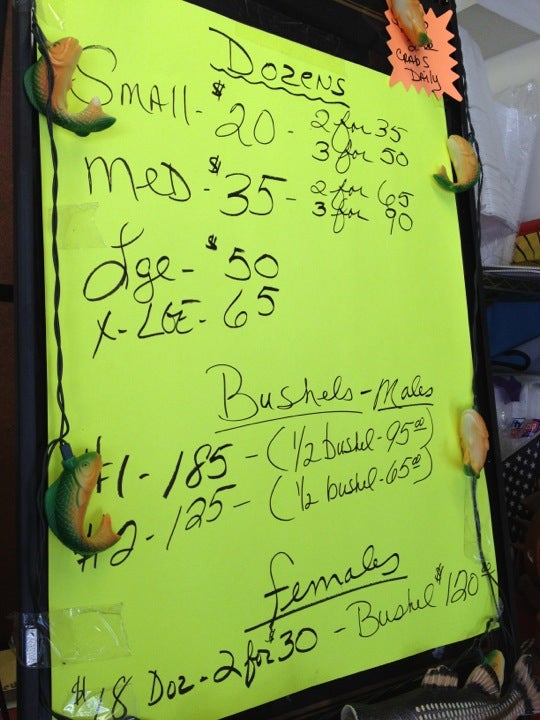 CRABS
DAILY
DOZENS
SMALL - $20 - 2 for 35
3 for 50
MED - $35 - 2 for 65
3 for 90
Lge - $50
X-LGE - 65
Bushels - Males
#1 - 185 - (1/2 bushel - 95.00)
#2 - 125 - (1/2 bushel - 65.00)
females
$18 Doz - 2 for $30 - Bushel $120